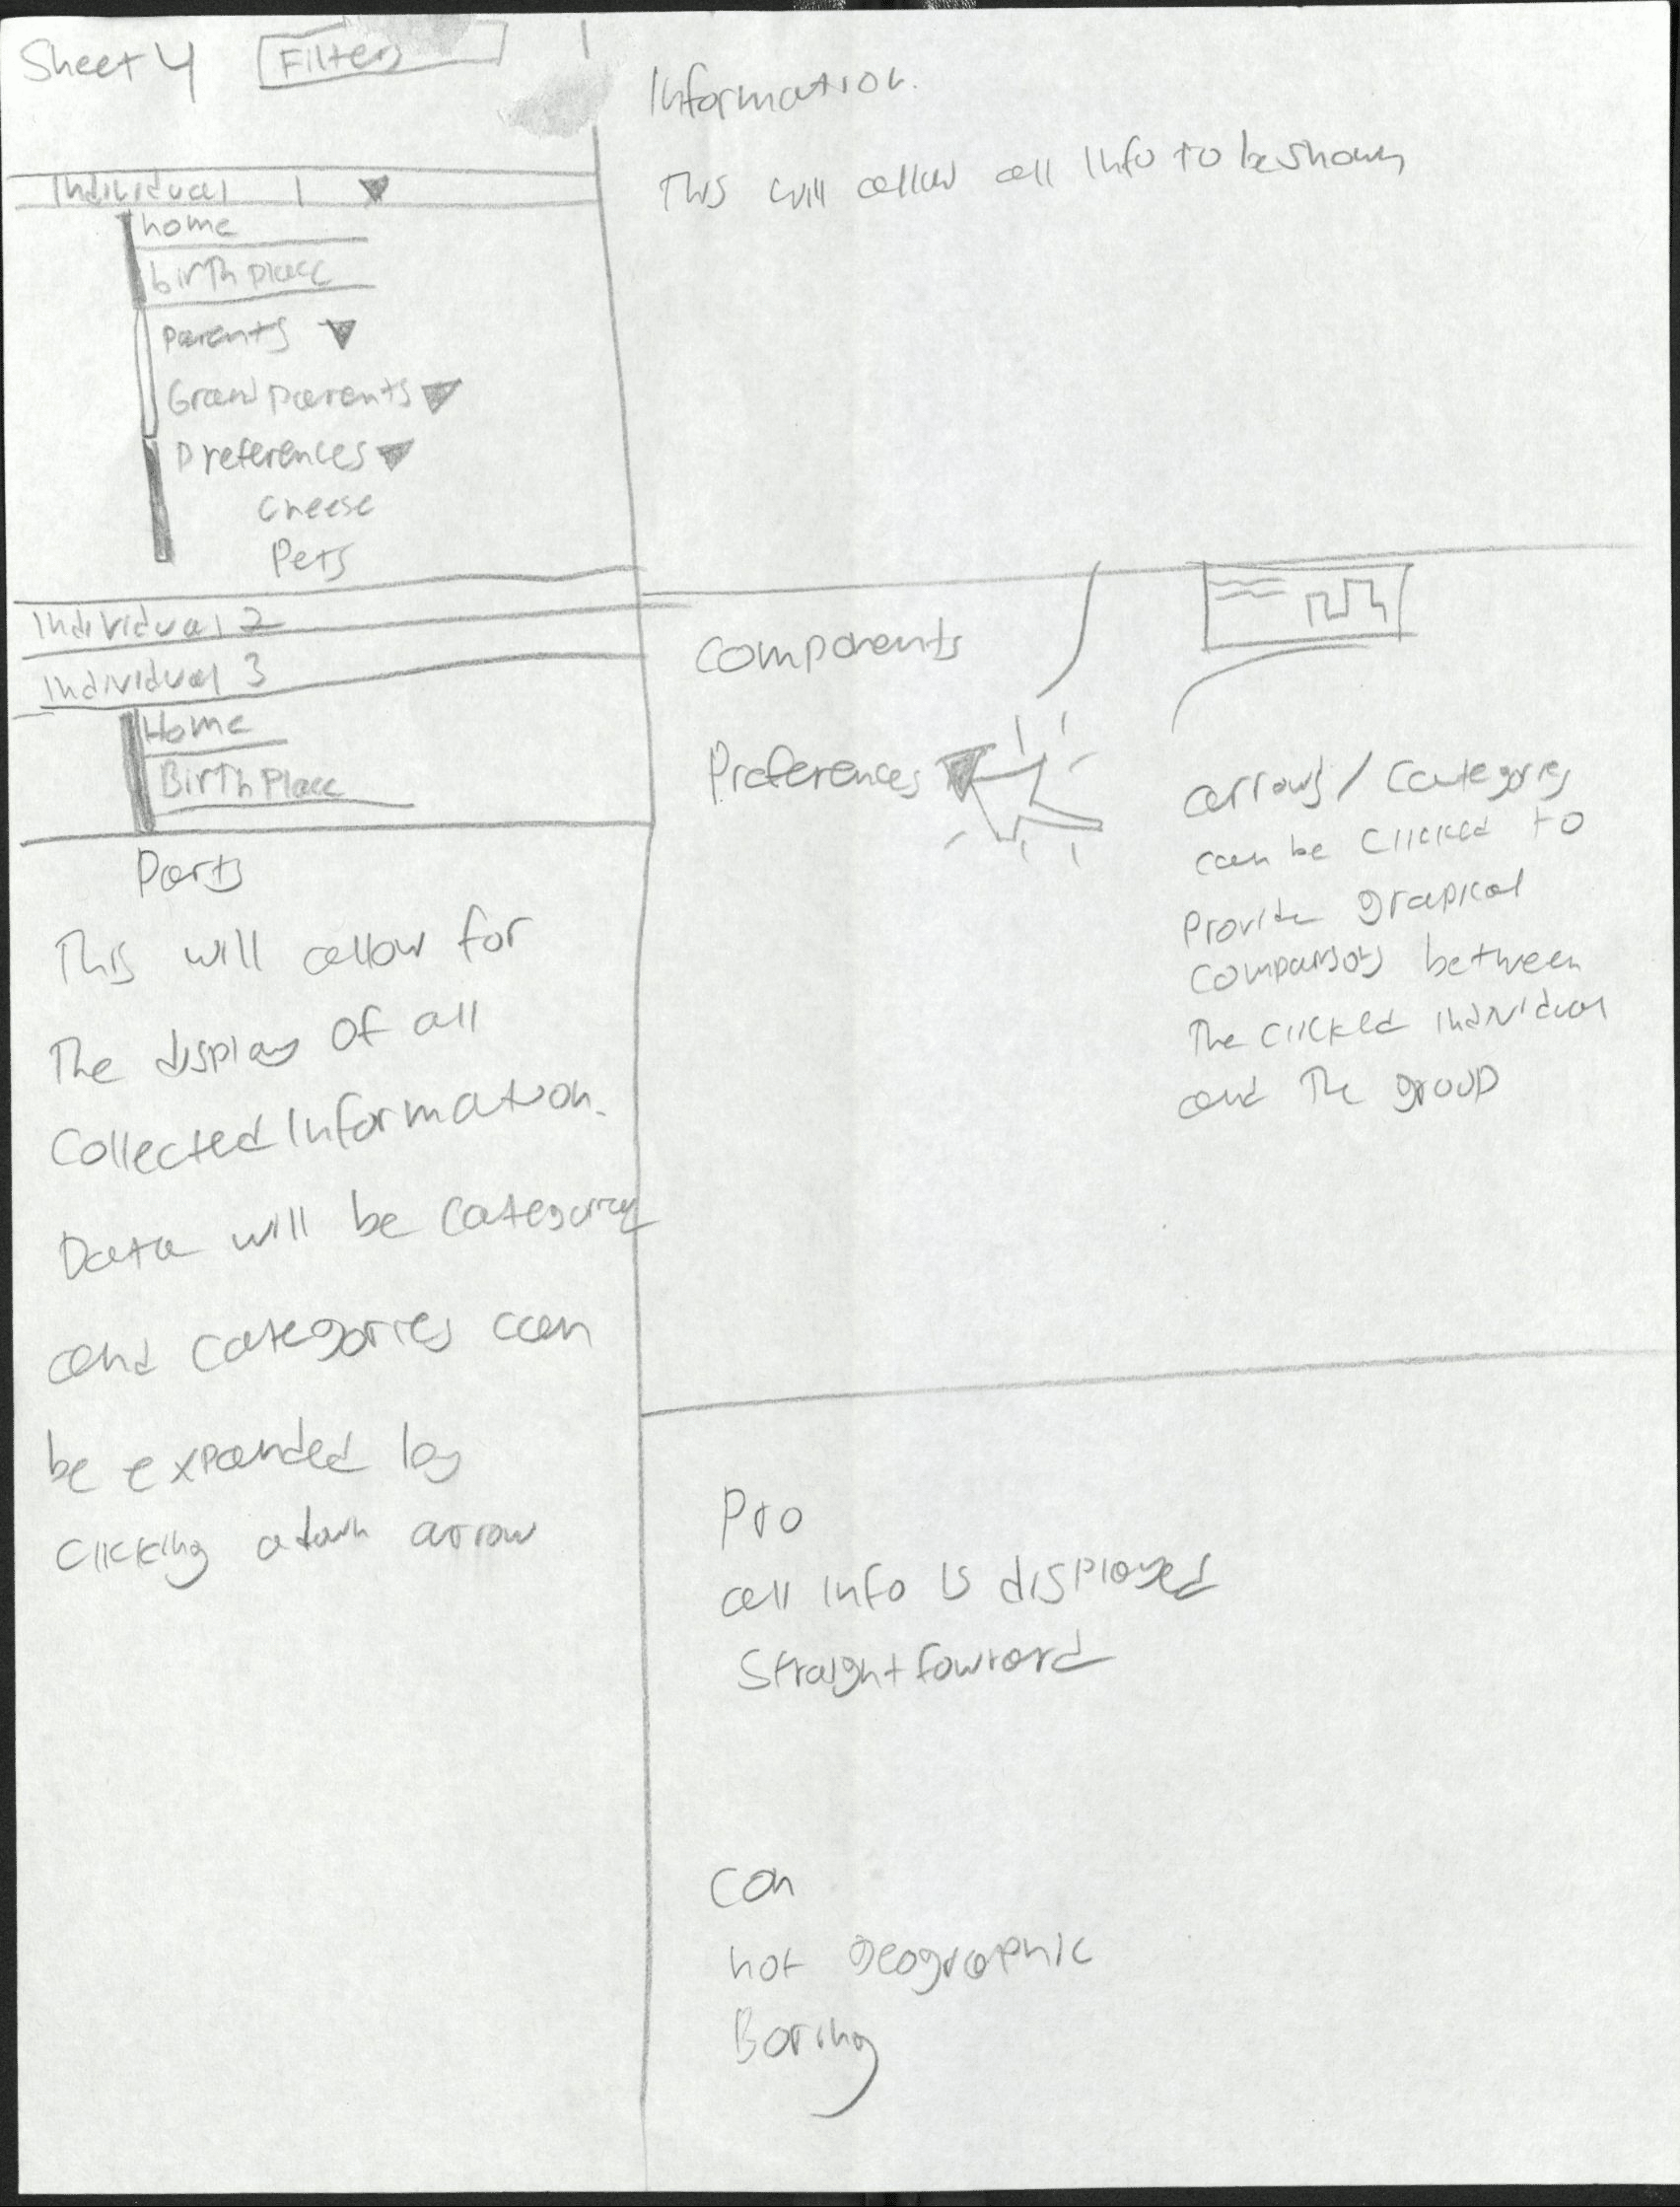 Sheet 4
Filters
Individual 1
home
birth place
Parents
Grand parents
Preferences
Cheese
Pets
Individual 2
Individual 3
Home
Birth Place
Parts
This will allow for
The display of all
Collected Information.
Data will be category
and categories can
be expanded by
clicking a down arrow
Information.
This will allow all Info to be shown
Components
Preferences
arrows / Categories
can be clicked to
Provide grapical
comparisons between
The clicked individual
and The group
Pro
all info is displayed
Straight foward
Con
not geographic
Boring